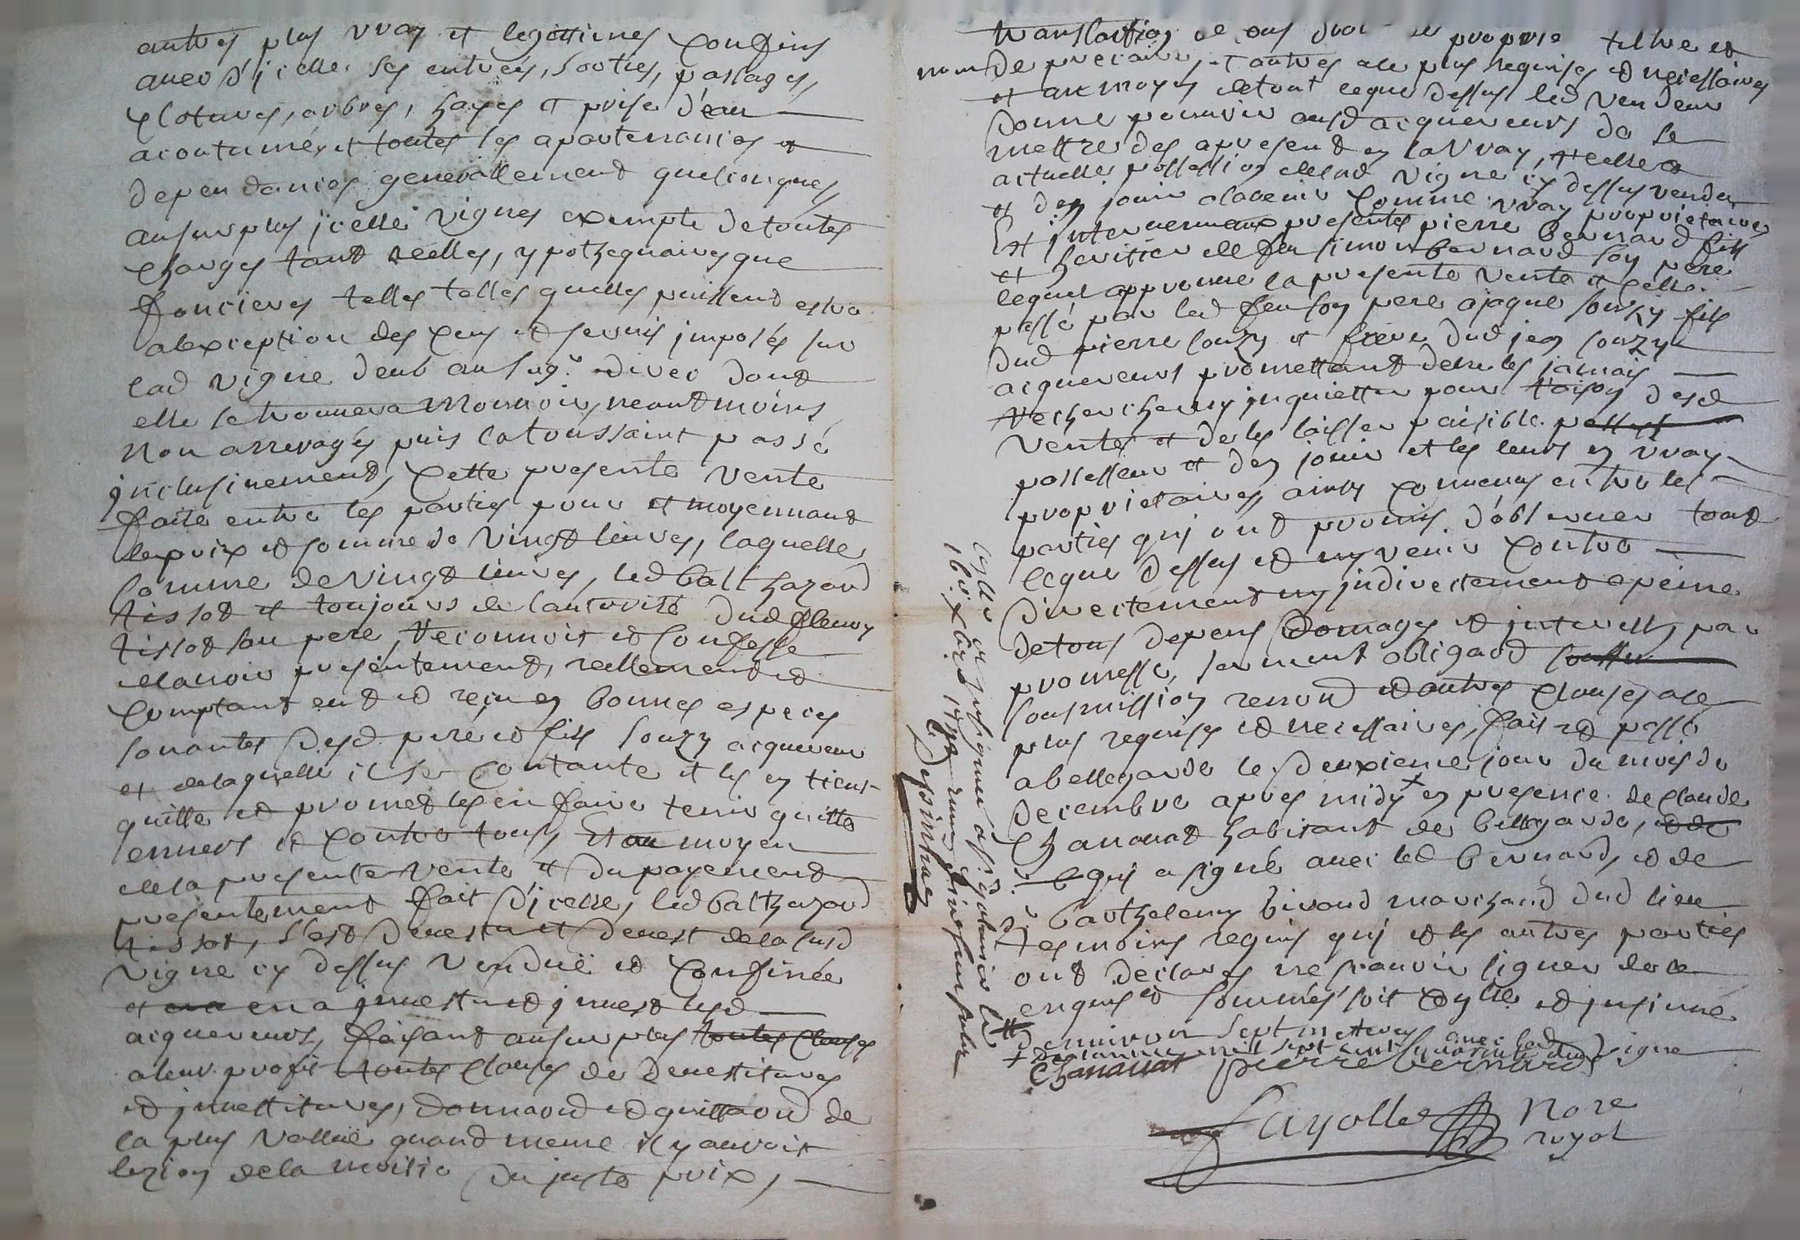 autres plus vray et legittimes confins
avec d'icelle ses entrées, sorties, passages,
clotures, arbres, hayes et prise d'eau
acoutumés et toutes les apartenances et
dependances generallement quelconques
au surplus jcelle vignes exempte de toutes
charges tant reelles, ypothequaires que
foncieres telles telles quelles puissent estre
a lexception des cens et servis jmposés sur
lad vigne deub au sugr divec dont
elle se trouvera mouvoir, neantmoins
non arreragés puis la toussaint passé
jnclusivement, cette presente vente
faite entre les parties pour et moyennant
le prix et somme de vingt livres, laquelle
somme de vingt livres, led balthazard
tissot et toujours de lautorité dud fleury
tissot son pere, reconnoit et confesse
davoir presentement, reellement et
comptant eut et reçu en bonnes especes
sonantes desd pere et fils souzy acquereurs
et de laquelle il se contante et les en tient
quitte et promet les en faire tenir quitte
envers et contre tous, et au moyen
de la presente vente et du payement
presentement fait d'icelle, led balthazard
tissot, s'est devestu et devest de la susd
vigne cy dessus venduë et confinée
et en a jnvestu et jnvest lesd
acquereurs, faisant au surplus toutes clauses
a leur profit toutes clauses de devestitures
et jnvestitures, donnant et quittant de
la plus vallue quand meme il y auroit
lezion de la moitié du juste prix,
translation de tous droits de propre tiltre et
nom de precaire, et autres ale plus requises et necessaires
et au moyen de tout ceque dessus led vendeur
donne pouvoir ausd acquereurs de se
mettre des apresent en la vray, reelle et
actuelle possession de lad vigne cy dessus vendue
et den jouir alavenir comme vray proprietaires
Et jntervenant presentes pierre bernard fils
et heritier de feu simon bernard son pere
lequel approuve la presente vente et celle
passé par led feu son pere a jaque souzy fils
dud pierre souzy et frere dud jean souzy
acquereurs promettant de ne les jamais
rechercher ny jnquietter pour raison desd
ventes et de les laisser paisible
possesseur et den jouir et les leurs en vray
proprietaires, ainsy convenus entre les
parties qui ont promis dobserver tout
ceque dessus et ny venir contre
directement ny jndirectement a peine
de tous depens domages et jnterests, par
promesse, serment obligaõn
soumission renonõn et autres clauses ale
plus requises et necessaires, fait et passé
a bellegarde le deuxieme jour du mois de
decembre apres midy + en presence de claude
Chanavat habitant de bellegarde,
qui a signé avec led bernard, et de
barthelemy biraud marchand dud lieu
tesmoins requis qui et les autres parties
ont declarés ne sçavoir signer de ce
enquis et sommés soit collé et jnsinué
+ de lannée mil sept cent quarante deux signé
Chanavat pierre bernard
fayolle nore
royal